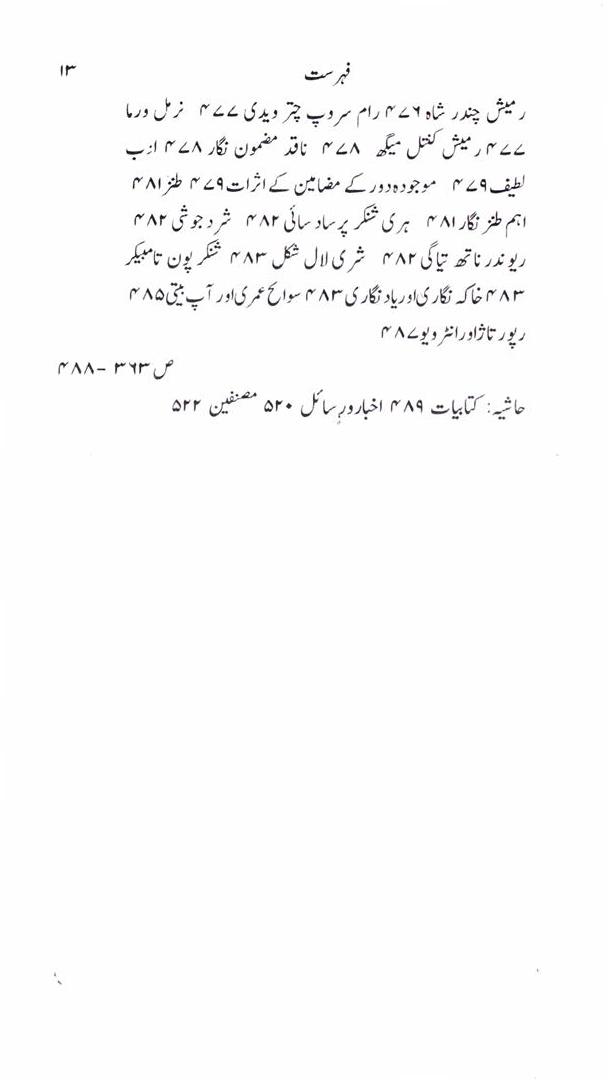 فہرست ۱۳
رمیش چندر شاہ ۴۷۶ رام سروپ چترویدی ۴۷۷ نرمل ورما
۴۷۷ رمیش کنتل میگھ ۴۷۸ ناقد مضمون نگار ۴۷۸ ازب
لطیف ۴۷۹ موجودہ دور کے مضامین کے اثرات ۴۷۹ طنز ۴۸۱
اہم طنز نگار ۴۸۱ ہری شنکر پرساد سائی ۴۸۲ شرد جوشی ۴۸۲
ریوندر ناتھ تیاگی ۴۸۲ شری لال شکل ۴۸۳ شنکر پون تامبیکر
۴۸۳ خاکہ نگاری اور یاد نگاری ۴۸۳ سوانح عمری اور آپ بیتی ۴۸۵
رپورتاژ اور انٹرویو ۴۸۷
ص ۳۶۳ – ۴۸۸
حاشیہ: کتابیات ۴۸۹ اخبار و رسائل ۵۲۰ مصنفین ۵۲۲